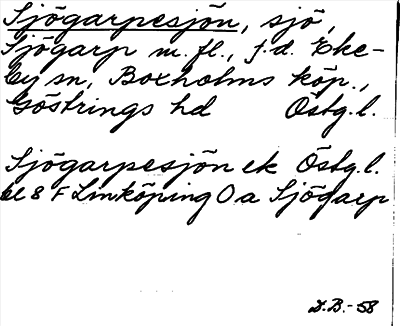 Sjögarpesjön, sjö,
Sjögarp m. fl., f. d. Eke-
by sn, Boxholms köp.,
Göstrings hd Östg. l.
Sjögarpesjön ek Östg. l.
bl 8 F Linköping O a Sjögarp
D.B.-58